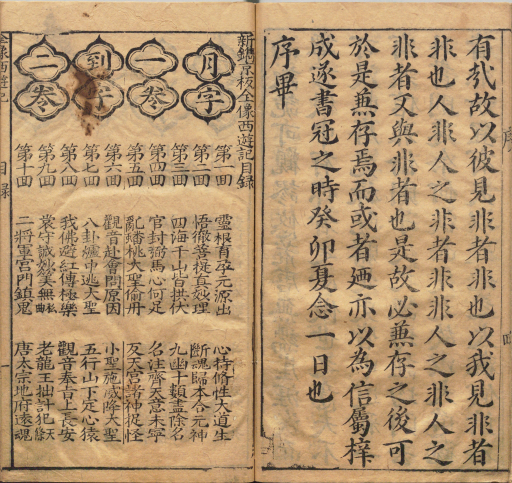 序
有㢤故以彼見非者非也以我見非者
非也人非人之非者非非人之非人之
非者又與非者也是故必兼存之後可
於是兼存焉而或者廼亦以為信屬梓
成遂書冠之時癸卯夏念一日也
序畢
新鍥京板全像西遊記目錄
月字
一卷
到字
二卷
第一回 靈根育孕元源出 心持脩性大道生
第二回 悟徹菩提真妙理 斷魔歸本合元神
第三回 四海千山皆拱伏 九幽十類盡除名
第四回 官封弼馬心何足 名注齊天意未寧
第五回 亂蟠桃大聖偷丹 反天宮諸神捉怪
第六回 觀音赴會問原因 小聖施威降大聖
第七回 八卦爐中逃大聖 五行山下定心猿
第八回 我佛造經傳極樂 觀音奉旨上長安
第九回 袁守誠妙筭無私 老龍王拙計犯天條
第十回 二將軍宮門鎮鬼 唐太宗地府還魂
全像西遊記 目錄 一